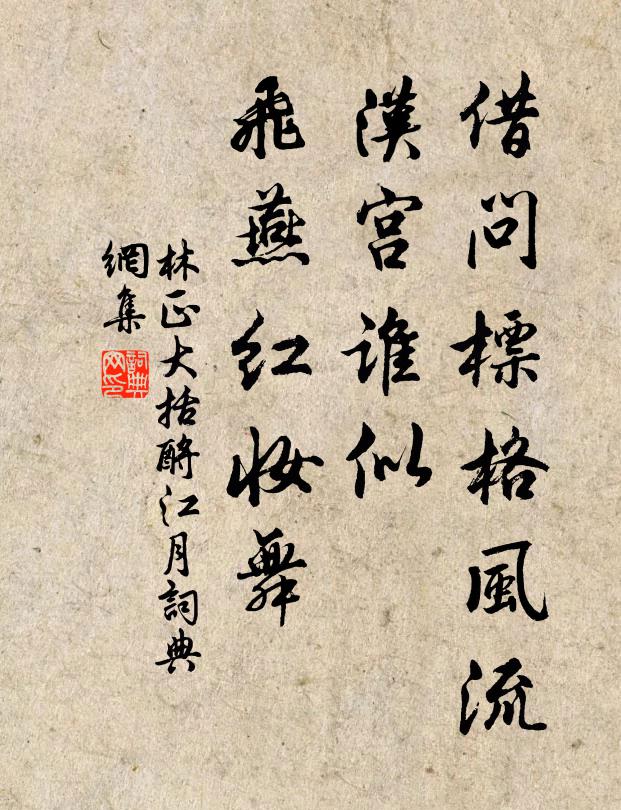 借问標格風流
漢宫谁似
飛燕红妝舞
林正大括酹江月詞典
網集
詞典网印